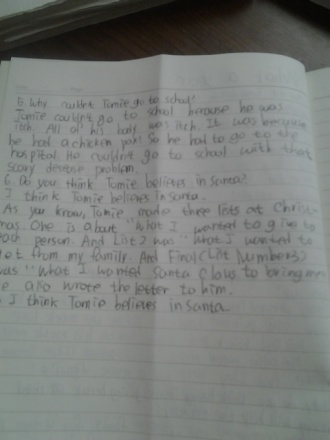 5. Why couldn't Tomie go to school?
Tomie couldn't go to school because he was
itch. All of his body was itch. It was because
he had a chicken pox! So he had to go to the
hospital. He couldn't go to school with that
scary disease problem.
6. Do you think Tomie believes in Santa?
I think Tomie believes in Santa.
As you know, Tomie made three lists at Christ-
mas. One is about "What I wanted to give to
each person. And List 2 was "What I wanted to
get from my family. And Final (List Number 3)
was "What I wanted Santa Claus to bring me
also wrote the letter to him.
I think Tomie believes in Santa.